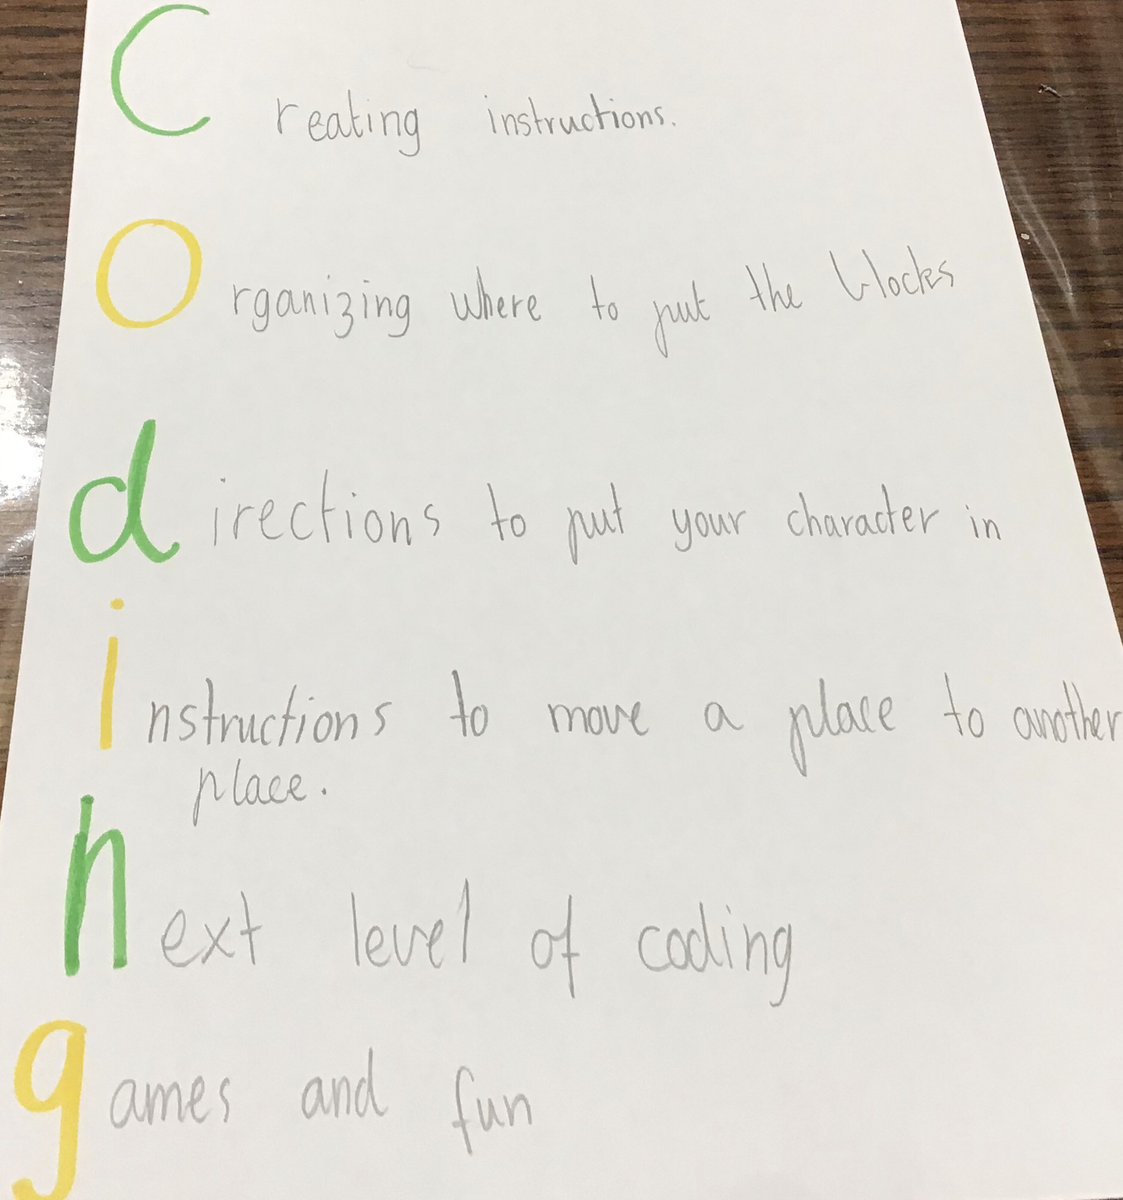 Creating instructions.
Organizing where to put the blocks
directions to put your character in
instructions to move a place to another
place.
next level of coding
games and fun